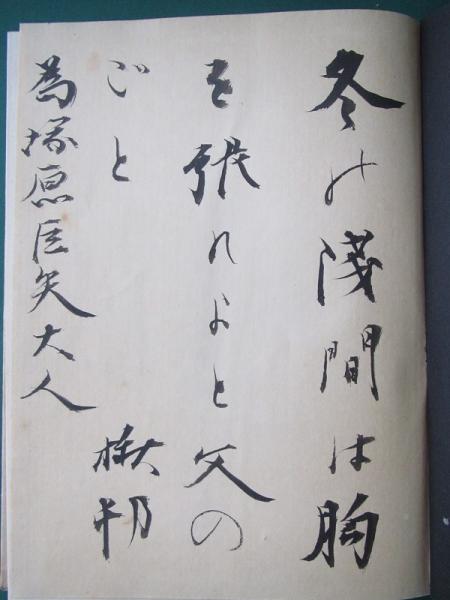 冬の淺間は胸
を張れよと父の
ごと
楸邨
為塚原医矢大人